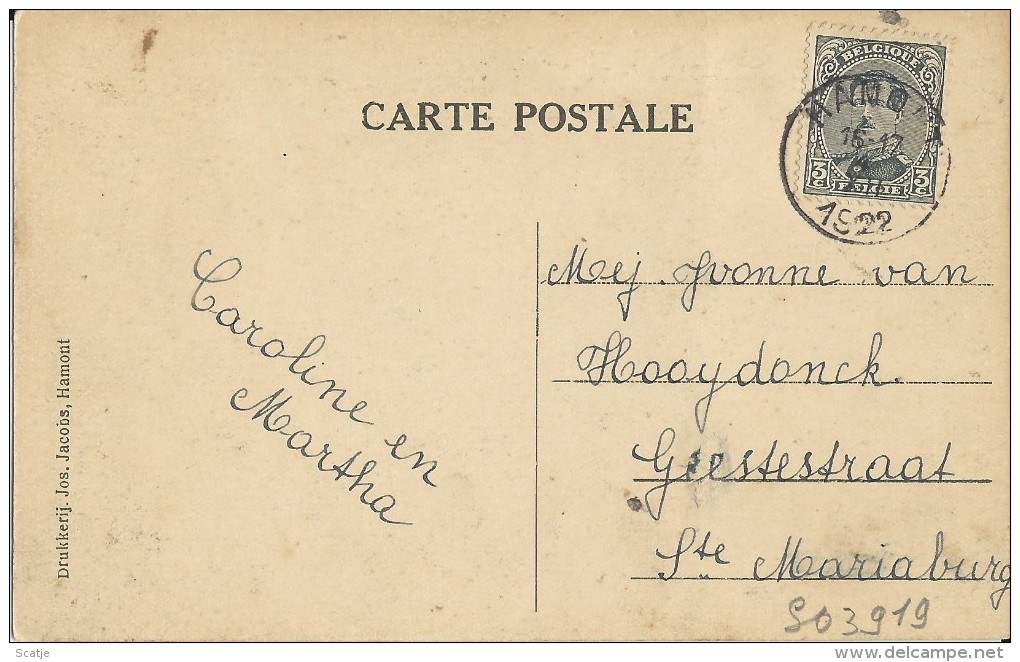 CARTE POSTALE
BELGIQUE
3c
3c
BELGIË
HAMONT
16-17
1922
Mej. Yvonne van
Hooydonck.
Geestestraat
Ste Mariaburg
Caroline en
Martha
Drukkerij. Jos. Jacobs, Hamont
S03919
Scatje
www.delcampe.net